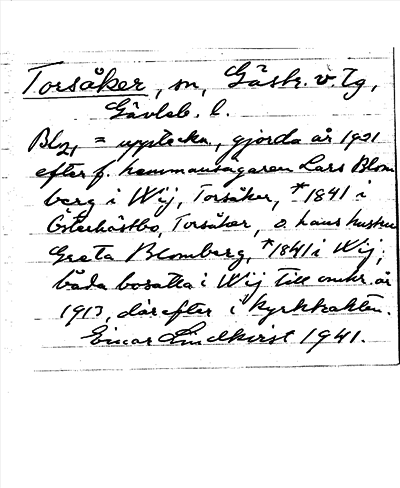 Torsåker, sn, Gästr. v. tg,
Gävleb. l.
Blbg = uppteckn., gjorda år 1921
efter f. hemmansägaren Lars Blom
berg i Wij, Torsåker, *1841 i
Österhästbo, Torsåker, o. hans hustru
Greta Blomberg, *1841 i Wij;
båda bosatta i Wij till omkr. år
1913, därefter i Kyrkhakten.
Einar Lindkvist 1941.